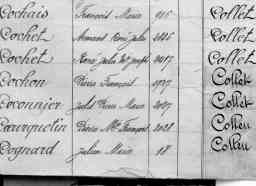 Cochais François Marie 915 Collet
Cochet Armand René Jules 2446 Collet
Cochet René Jules Joseph 3017 Collet
Cochon Pierre François 1927 Collet
Coconnier Jules Pierre Marie 2007 Collet
Pierre François 2028 Colleu
Cognard Julien Marie 18 Colleu